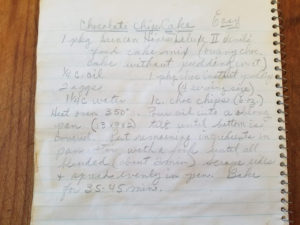 Chocolate Chip Cake Easy
1 pkg Duncan Hines Deluxe II devils
food cake mix (or any choc.
cake without pudding in it)
1/4 c. oil 1 pkg choc instant pudding
2 eggs (4 serving size)
1 1/4 c water 1 c. choc chips (6 oz.)
Heat oven 350°. Pour oil into a
pan (13x9x2) tilt until bottom is
covered. Put remaining ingredients in
pan. Stir with a fork until all
blended (about 2 min) scrape sides
& spread evenly in pan. Bake
for 35-45 mins.